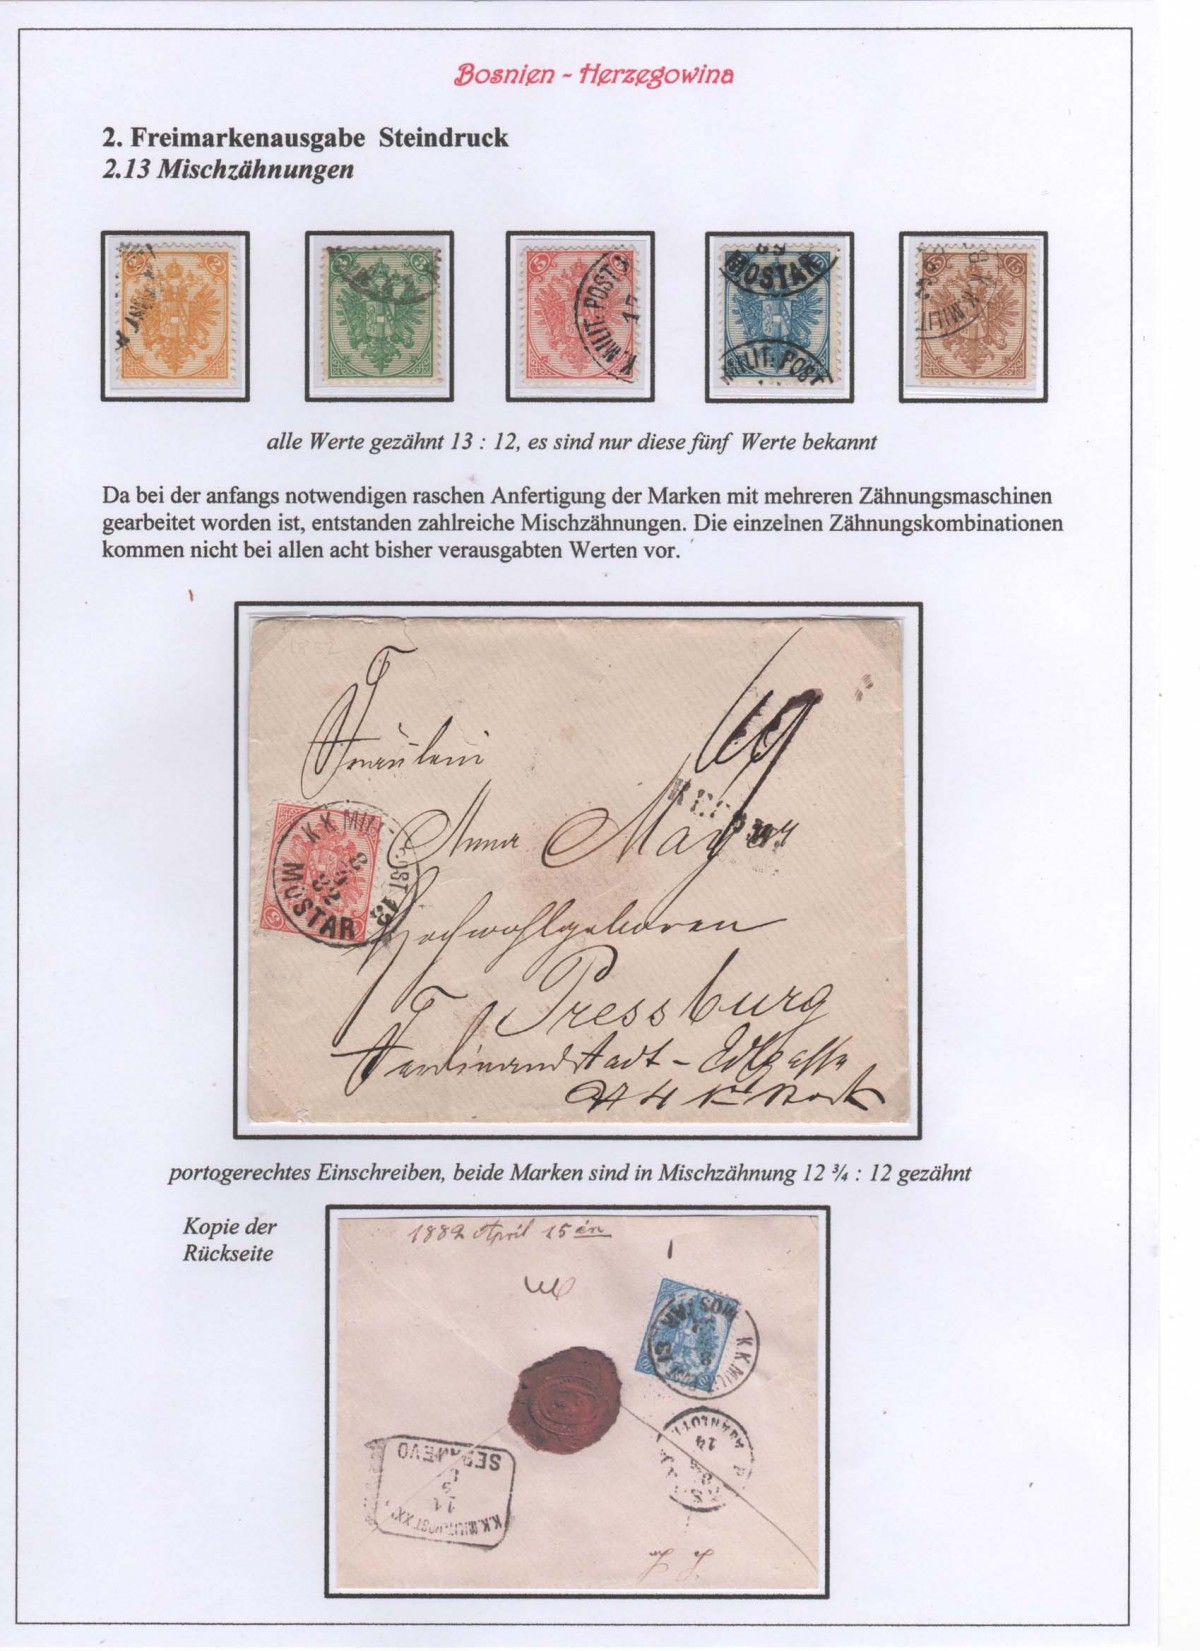 Bosnien - Herzegowina
2. Freimarkenausgabe Steindruck
2.13 Mischzähnungen
2
5
K. MILIT. POST
17
89
MOSTAR
MILIT. POST
15
alle Werte gezähnt 13 : 12, es sind nur diese fünf Werte bekannt
Da bei der anfangs notwendigen raschen Anfertigung der Marken mit mehreren Zähnungsmaschinen
gearbeitet worden ist, entstanden zahlreiche Mischzähnungen. Die einzelnen Zähnungskombinationen
kommen nicht bei allen acht bisher verausgabten Werten vor.
Fräulein
Anna Mayer
K.K. MILIT. POST 13
MOSTAR
Hochwohlgeboren
Pressburg
Ferdinandstadt - Edlgasse
portogerechtes Einschreiben, beide Marken sind in Mischzähnung 12 ¾ : 12 gezähnt
Kopie der
Rückseite
1882 April 15 én
MOSTAR
K.K. MILIT. POST 13
14
SERAJEVO
K.K. MILIT. POST XX